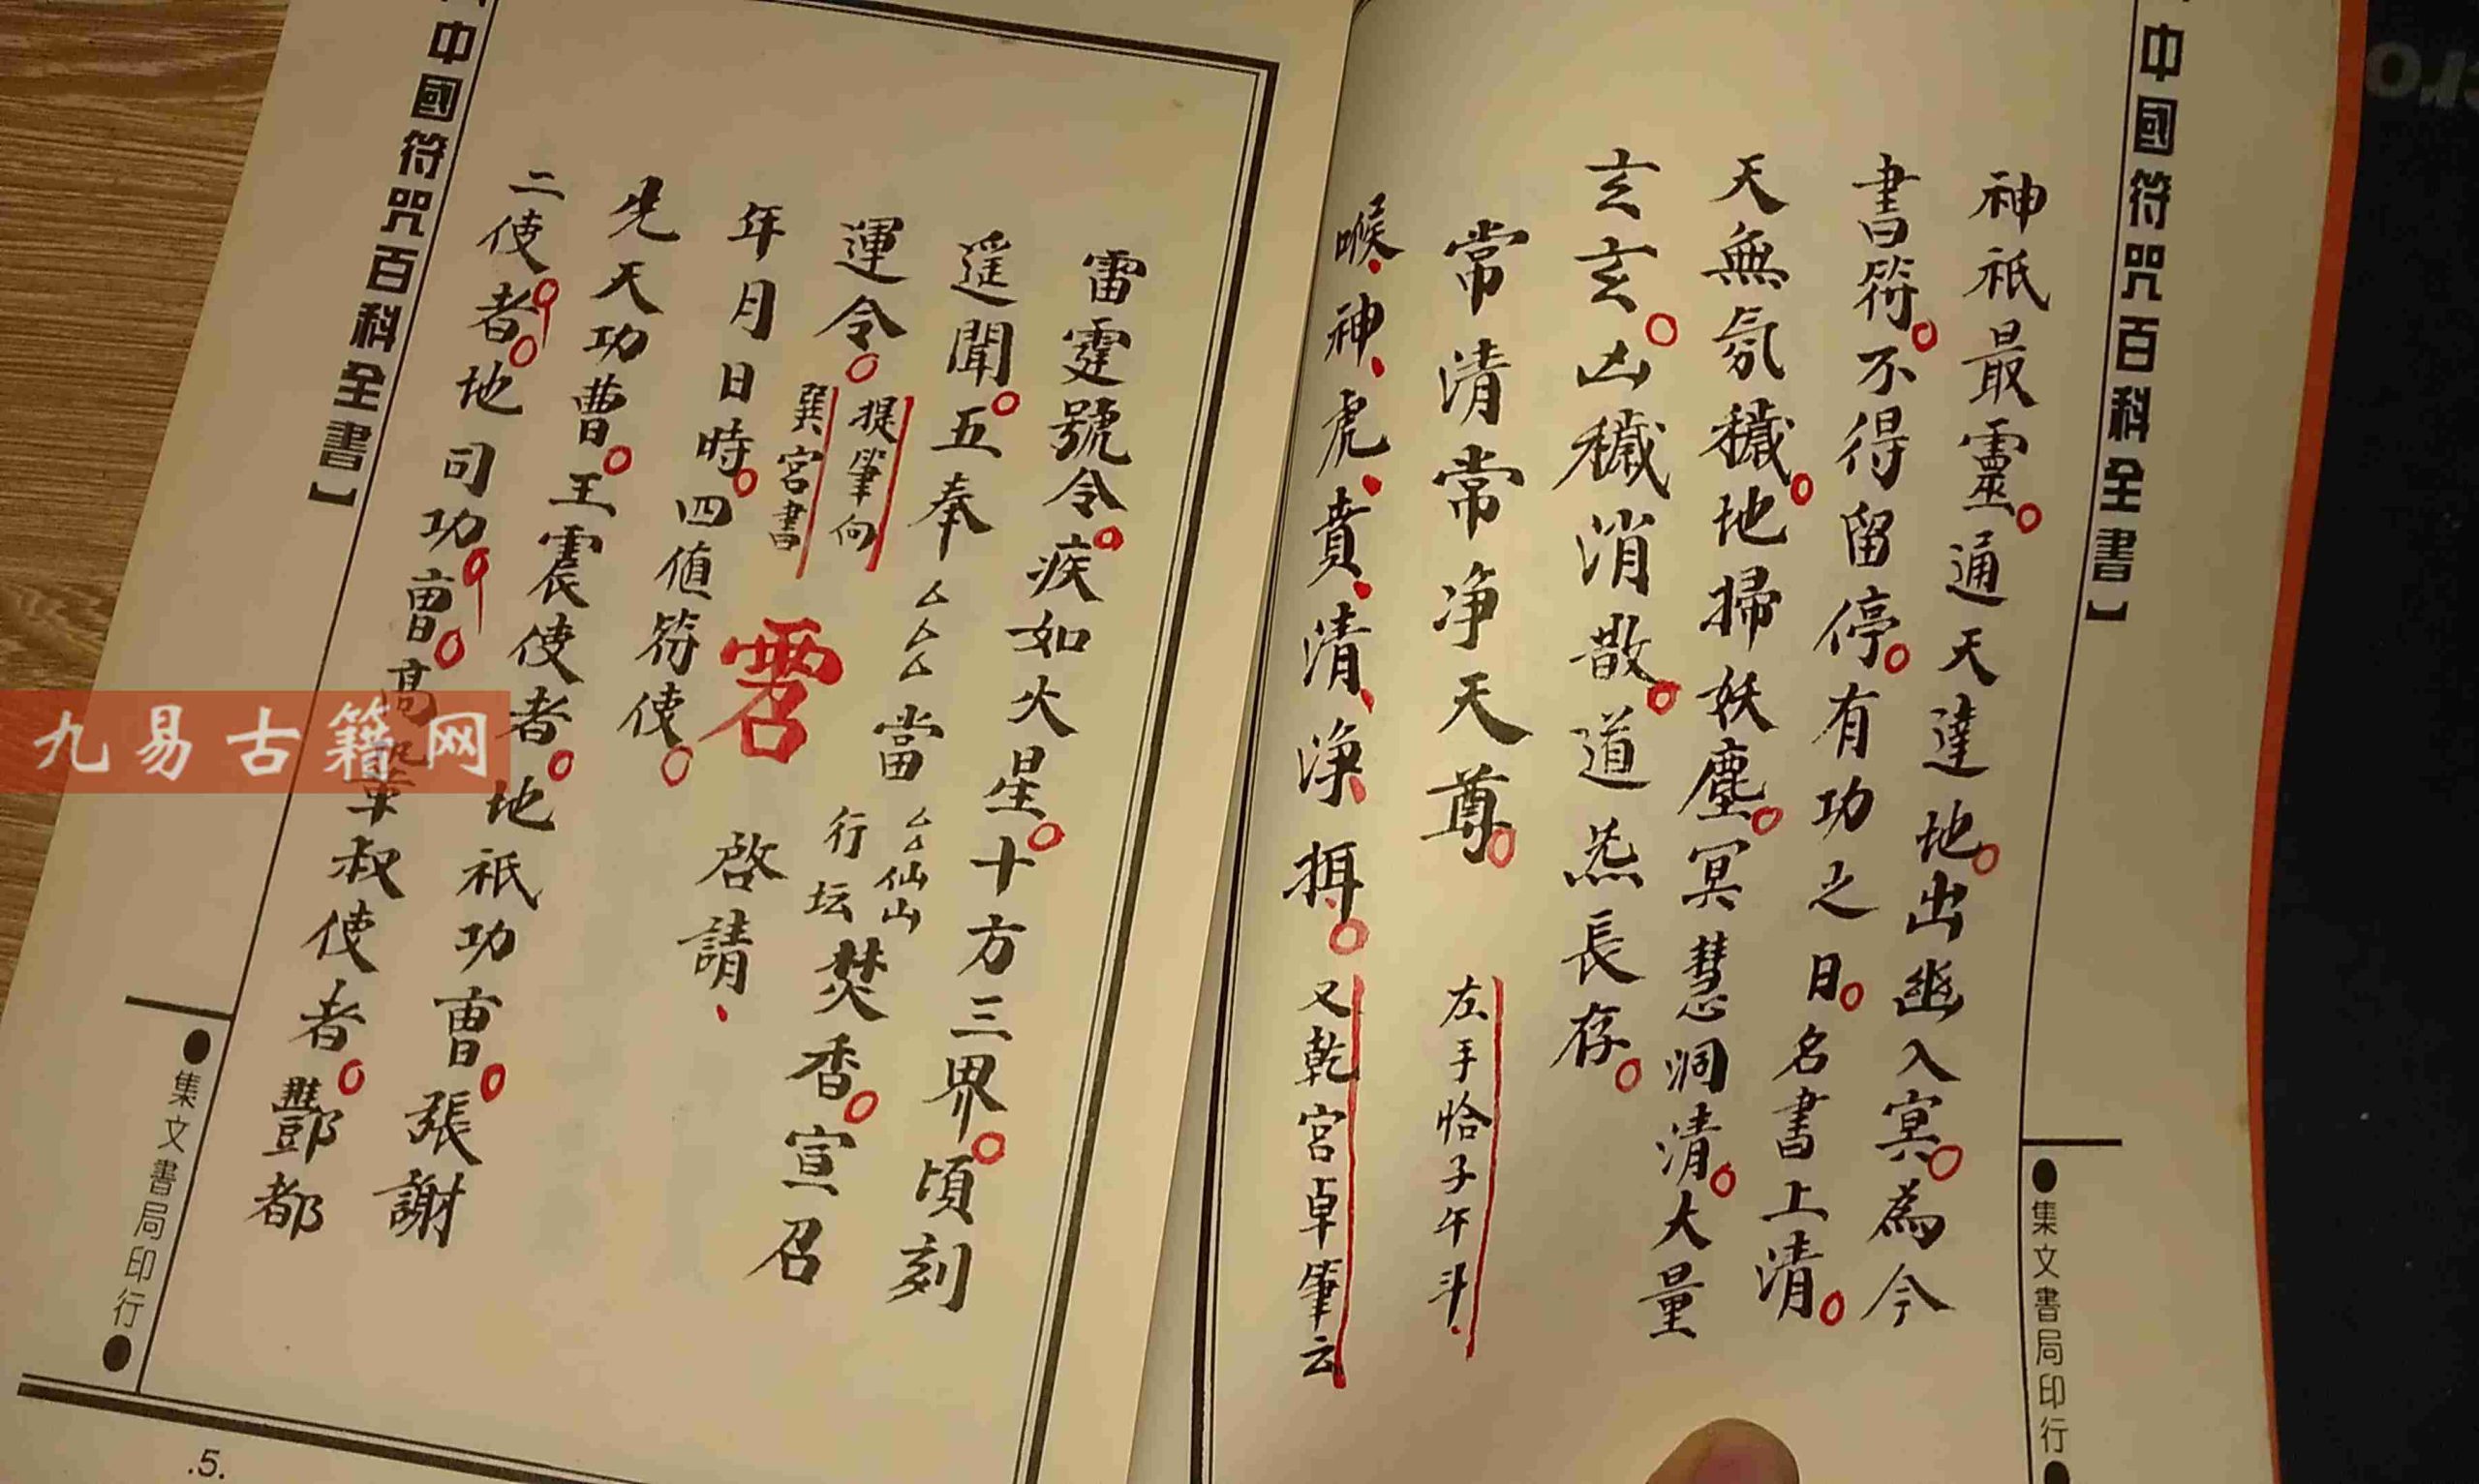 中國符咒百科全書】
神祇最靈通天達地出幽入冥為今
書符不得留停有功之日名書上清
天無氛穢地掃妖塵冥慧洞清大量
玄玄凶穢消散道炁長存
常清常常净天尊 左手恰子午斗
㬋神虎賁清淨揖 又乾宮卓筆云
●集文書局印行●
雷霆號令疾如火星十方三界頃刻
遥聞五奉厶厶厶當厶厶仙山行坛焚香宣召
運令 提筆向巽宮書
年月日時四值符使 啓請
先天功曹王震使者地祇功曹張謝
二使者地司功曹高 叔使者酆都
中國符咒百科全書】
●集文書局印行●
.5.
九易古籍网